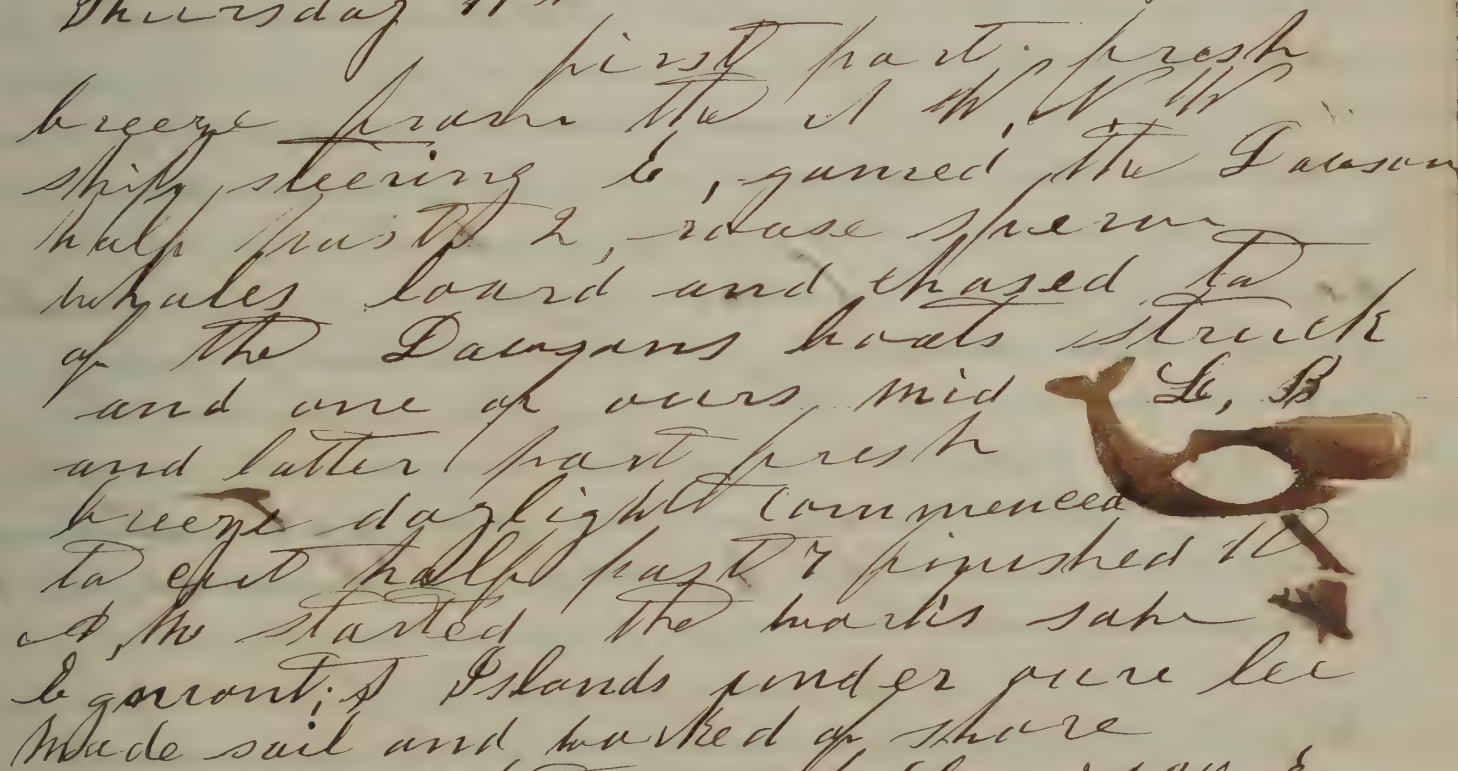 Thursday 11th
first part fresh
breeze from the N W, N W
ship steering E, gamed the Dawson
half past 2, rause sperm
whales loard and chased to
of the Dawsons boats struck
and one of ours mid L, B
and latter part fresh
breeze daylight commenced
to cut half past 7 finished 10
A, M started the works saw
Islands under oure lee
Made sail and worked of shore